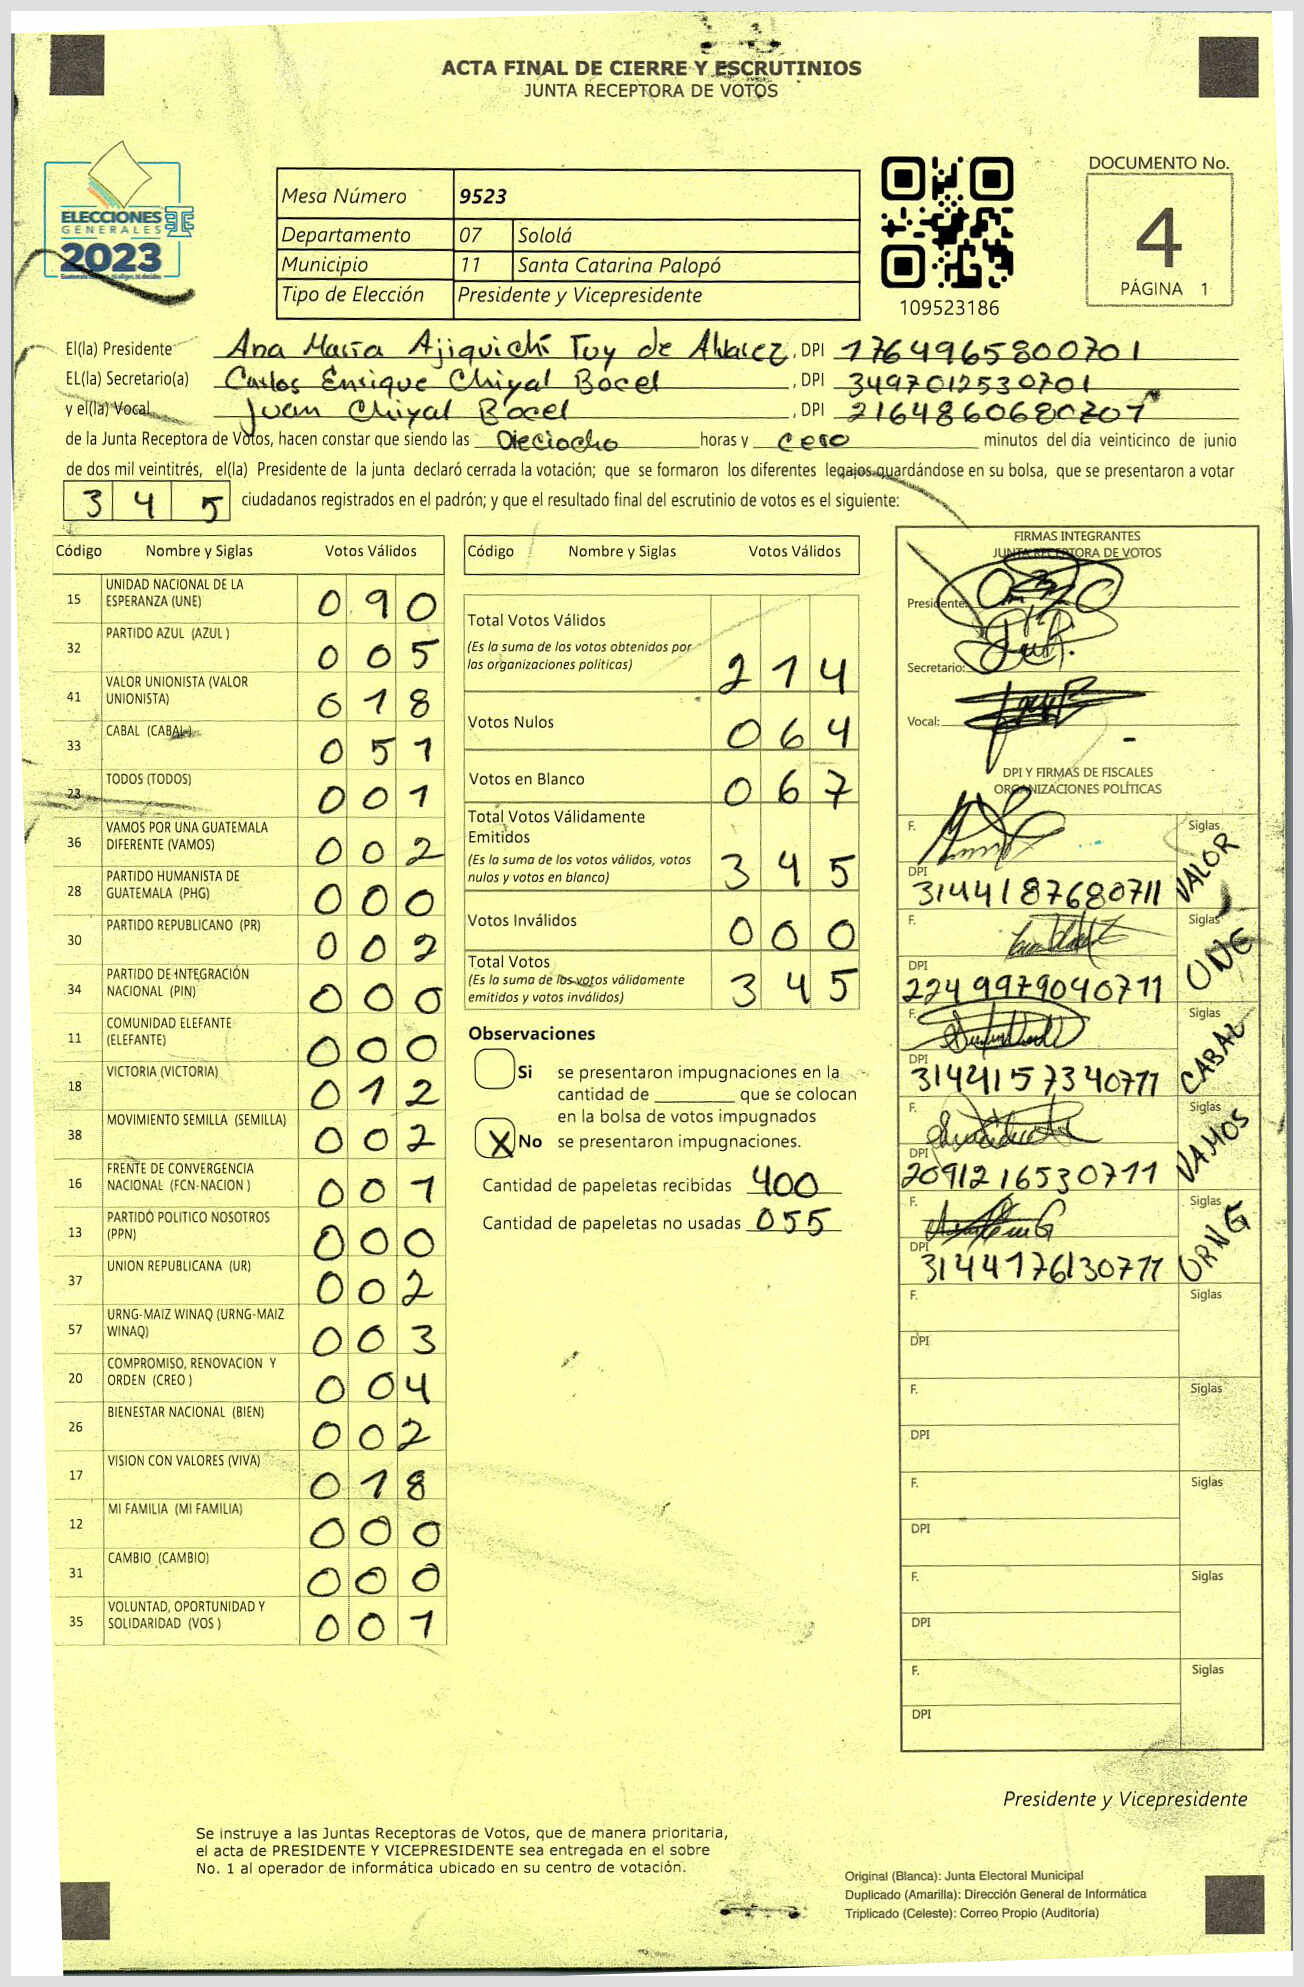 ACTA FINAL DE CIERRE Y ESCRUTINIOS
JUNTA RECEPTORA DE VOTOS
ELECCIONES
GENERALES
2023
Mesa Número 9523
Departamento 07 Sololá
Municipio 11 Santa Catarina Palopó
Tipo de Elección Presidente y Vicepresidente
109523186
DOCUMENTO No.
4
PÁGINA 1
El(la) Presidente Ana María Ajiquichí Tuy de Alvarez, DPI 1764965800701
EL(la) Secretario(a) Carlos Enrique Chiyal Bocel, DPI 3497012530701
y el(la) Vocal Juan Chiyal Bocel, DPI 2164860680707
de la Junta Receptora de Votos, hacen constar que siendo las Dieciocho horas y cero minutos del día veinticinco de junio
de dos mil veintitrés, el(la) Presidente de la junta declaró cerrada la votación; que se formaron los diferentes legajos guardándose en su bolsa, que se presentaron a votar
345 ciudadanos registrados en el padrón; y que el resultado final del escrutinio de votos es el siguiente:
Código Nombre y Siglas Votos Válidos
15 UNIDAD NACIONAL DE LA ESPERANZA (UNE) 090
32 PARTIDO AZUL (AZUL ) 005
41 VALOR UNIONISTA (VALOR UNIONISTA) 018
33 CABAL (CABAL) 051
23 TODOS (TODOS) 001
36 VAMOS POR UNA GUATEMALA DIFERENTE (VAMOS) 002
28 PARTIDO HUMANISTA DE GUATEMALA (PHG) 000
30 PARTIDO REPUBLICANO (PR) 002
34 PARTIDO DE INTEGRACIÓN NACIONAL (PIN) 000
11 COMUNIDAD ELEFANTE (ELEFANTE) 000
18 VICTORIA (VICTORIA) 012
38 MOVIMIENTO SEMILLA (SEMILLA) 002
16 FRENTE DE CONVERGENCIA NACIONAL (FCN-NACION ) 001
13 PARTIDO POLITICO NOSOTROS (PPN) 000
37 UNION REPUBLICANA (UR) 002
57 URNG-MAIZ WINAQ (URNG-MAIZ WINAQ) 003
20 COMPROMISO, RENOVACION Y ORDEN (CREO ) 004
26 BIENESTAR NACIONAL (BIEN) 002
17 VISION CON VALORES (VIVA) 018
12 MI FAMILIA (MI FAMILIA) 000
31 CAMBIO (CAMBIO) 000
35 VOLUNTAD, OPORTUNIDAD Y SOLIDARIDAD (VOS ) 001
Código Nombre y Siglas Votos Válidos
Total Votos Válidos
(Es la suma de los votos obtenidos por
las organizaciones políticas) 214
Votos Nulos 064
Votos en Blanco 067
Total Votos Válidamente
Emitidos
(Es la suma de los votos válidos, votos
nulos y votos en blanco) 345
Votos Inválidos 000
Total Votos
(Es la suma de los votos válidamente
emitidos y votos inválidos) 345
Observaciones
Si se presentaron impugnaciones en la
cantidad de ________ que se colocan
en la bolsa de votos impugnados
X No se presentaron impugnaciones.
Cantidad de papeletas recibidas 400
Cantidad de papeletas no usadas 055
FIRMAS INTEGRANTES
JUNTA RECEPTORA DE VOTOS
Presidente:
Secretario:
Vocal:
DPI Y FIRMAS DE FISCALES
ORGANIZACIONES POLÍTICAS
F. Siglas VALOR
DPI 3144187680711
F. Siglas UNE
DPI 2249979040711
F. Siglas CABAL
DPI 3144157340711
F. Siglas VAMOS
DPI 2091216530711
F. Siglas URNG
DPI 3144176130711
F. Siglas
DPI
F. Siglas
DPI
F. Siglas
DPI
F. Siglas
DPI
F. Siglas
DPI
Presidente y Vicepresidente
Se instruye a las Juntas Receptoras de Votos, que de manera prioritaria,
el acta de PRESIDENTE Y VICEPRESIDENTE sea entregada en el sobre
No. 1 al operador de informática ubicado en su centro de votación.
Original (Blanca): Junta Electoral Municipal
Duplicado (Amarilla): Dirección General de Informática
Triplicado (Celeste): Correo Propio (Auditoría)